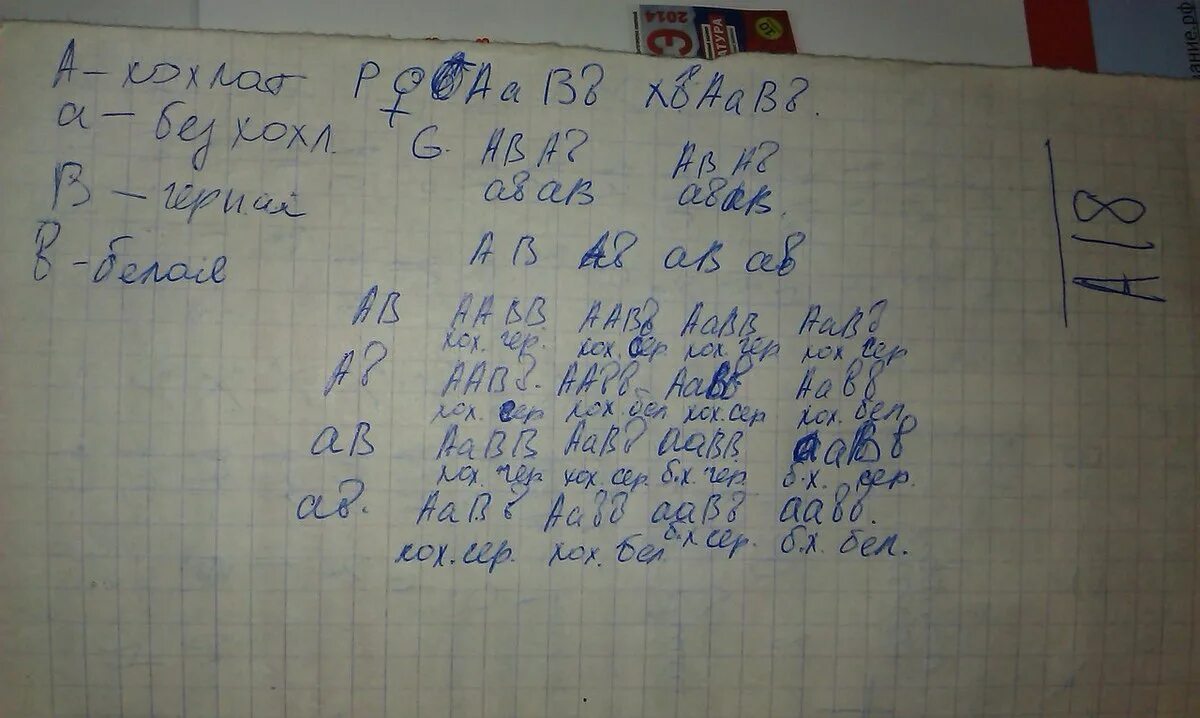 2014
Э
АТУРА
ание.рф
А – хохлат Р ♀ АаВв х ♂ АаВв.
а – без хохл. G. АВ Ав АВ Ав
В – чёрная ав аВ ав аВ.
в – белая АВ Ав аВ ав
АВ ААВВ ААВв АаВВ АаВв
хох. чер. хох. сер. хох. чер. хох. сер.
Ав ААВв. ААвв АаВв Аавв
хох. сер. хох. бел хох. сер хох. бел.
аВ АаВВ АаВв ааВВ ааВв
хох. чер. хох. сер. б.х. чер. б.х. сер.
ав. АаВв Аавв ааВв аавв.
хох. сер. хох. бел б.х сер. б.х. бел.
А 18